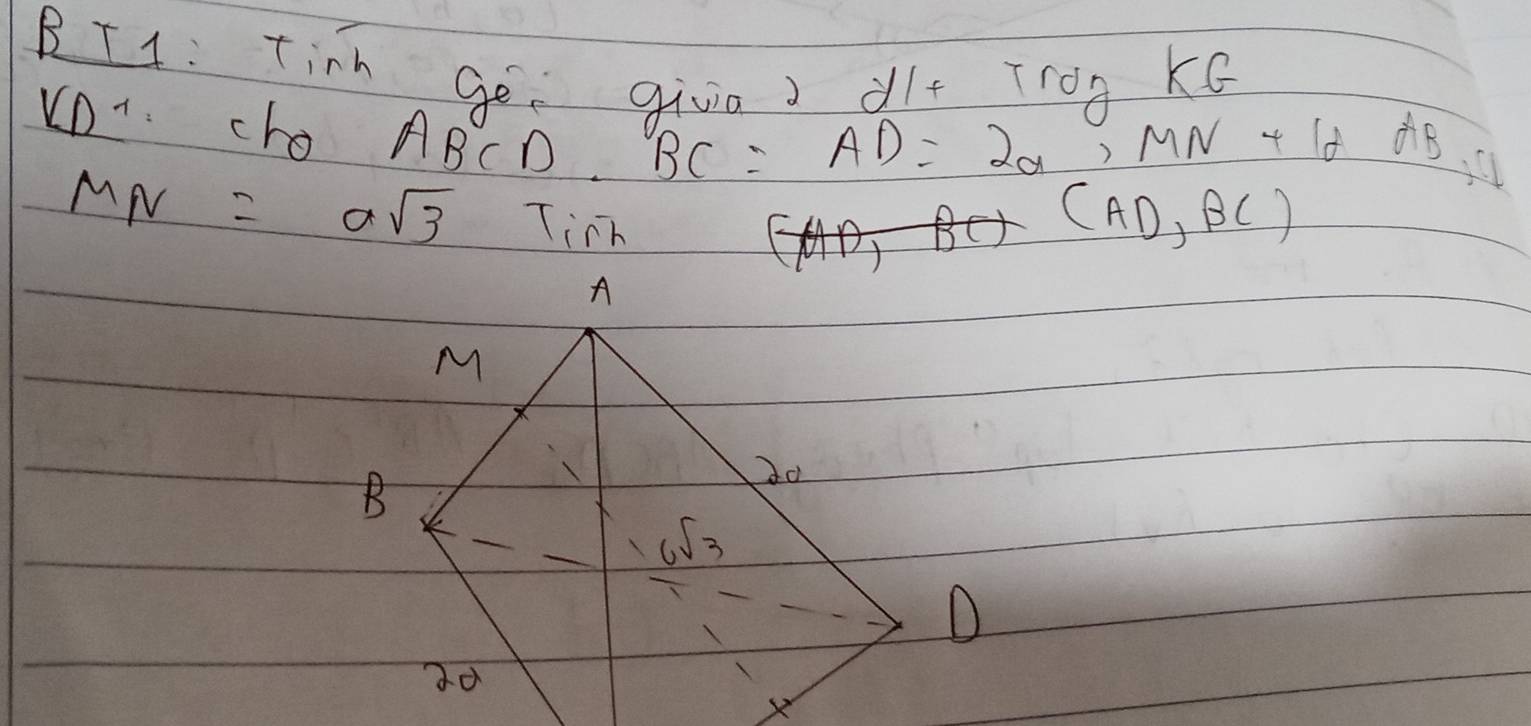 BT1: Tính góc giữa 2 đlt trog KG
VD1: cho ABCD. BC = AD = 2a, MN + là AB,
MN = a√3 Tính (AD, BC) (AD, BC)
A
M
B
2a
a√3
D
2a